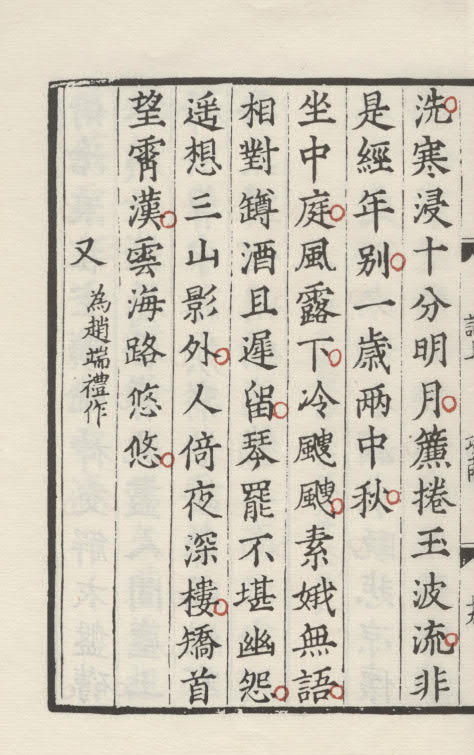 洗寒浸十分明月簾捲玉波流非
是經年別一歲兩中秋
坐中庭風露下冷颼颼素娥無語
相對鐏酒且遲留琴罷不堪幽怨
遥想三山影外人倚夜深樓矯首
望霄漢雲海路悠悠
又 為趙端禮作